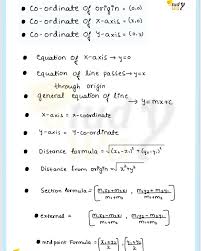 Co-ordinate of origin = (0,0)
Co-ordinate of x-axis = (x,0)
Co-ordinate of y-axis = (0,y)
Equation of x-axis → y=0
Equation of line passes → y=x
through origin
general equation of line
→ y=mx+c
x-axis = x-coordinate
y-axis = y-co-ordinate
Distance formula = √(x₂-x₁)² + (y₂-y₁)²
Distance from origin = √x²+y²
Section formula = [m₁x₂+m₂x₁ / m₁+m₂ , m₁y₂+m₂y₁ / m₁+m₂]
External = [m₁x₂-m₂x₁ / m₁-m₂ , m₁y₂-m₂y₁ / m₁-m₂]
midpoint Formula =